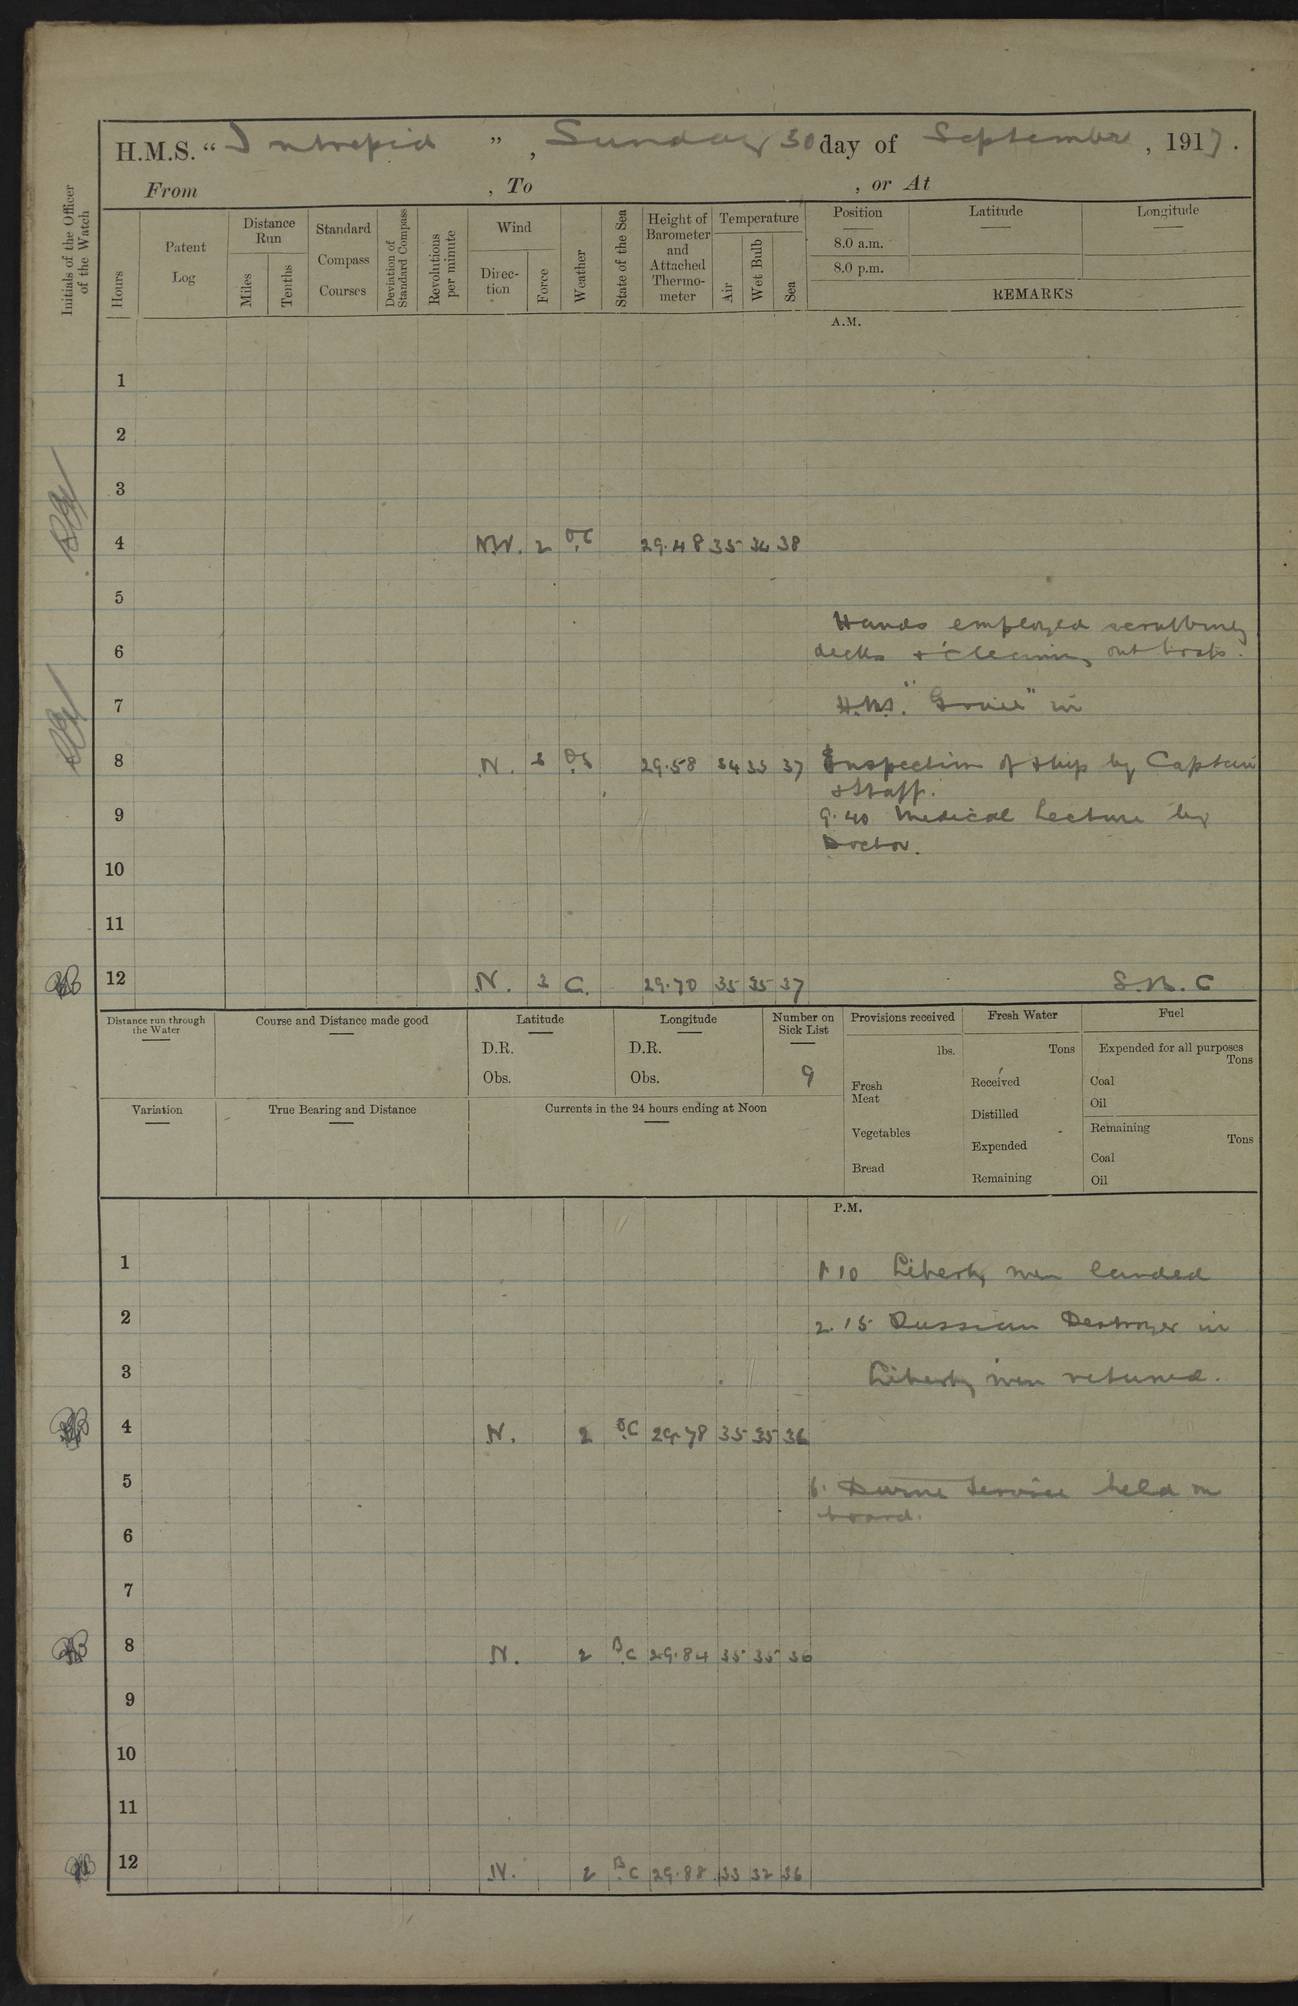 H.M.S. “Intrepid”, Sunday 30 day of September, 1917.
From , To , or At
Initials of the Officer of the Watch
Hours
Patent Log
Distance Run
Miles
Tenths
Standard Compass Courses
Deviation of Standard Compass
Revolutions per minute
Wind
Direction
Force
Weather
State of the Sea
Height of Barometer and Attached Thermometer
Temperature
Air
Wet Bulb
Sea
Position Latitude Longitude
8.0 a.m.
8.0 p.m.
REMARKS
A.M.
1
2
3
4 N.W. 2 O.C 29.48 35 34 38
5
Hands employed scrubbing
6 decks & cleaning out boats.
7 H.M.S. " " in
8 N. 3 29.58 34 33 37 Inspection of ship by Captain
& Staff.
9 9.40 Medical Lecture by
Doctor.
10
11
12 N. 3 C. 29.70 35 35 37 S.B.C
Distance run through the Water
Course and Distance made good
Latitude
D.R.
Obs.
Longitude
D.R.
Obs.
Number on Sick List
9
Provisions received
lbs.
Fresh Meat
Vegetables
Bread
Fresh Water
Tons
Received
Distilled
Expended
Remaining
Fuel
Expended for all purposes
Tons
Coal
Oil
Remaining
Tons
Coal
Oil
Variation
True Bearing and Distance
Currents in the 24 hours ending at Noon
P.M.
1 1.10 Liberty men landed
2 2.15 Russian Destroyer in
3 Liberty men returned.
4 N. 2 O.C 29.78 35 35 36
5 6. Divine Service held on
board.
6
7
8 N. 2 B.C 29.84 35 35 36
9
10
11
12 N. 2 B.C 29.88 33 32 36